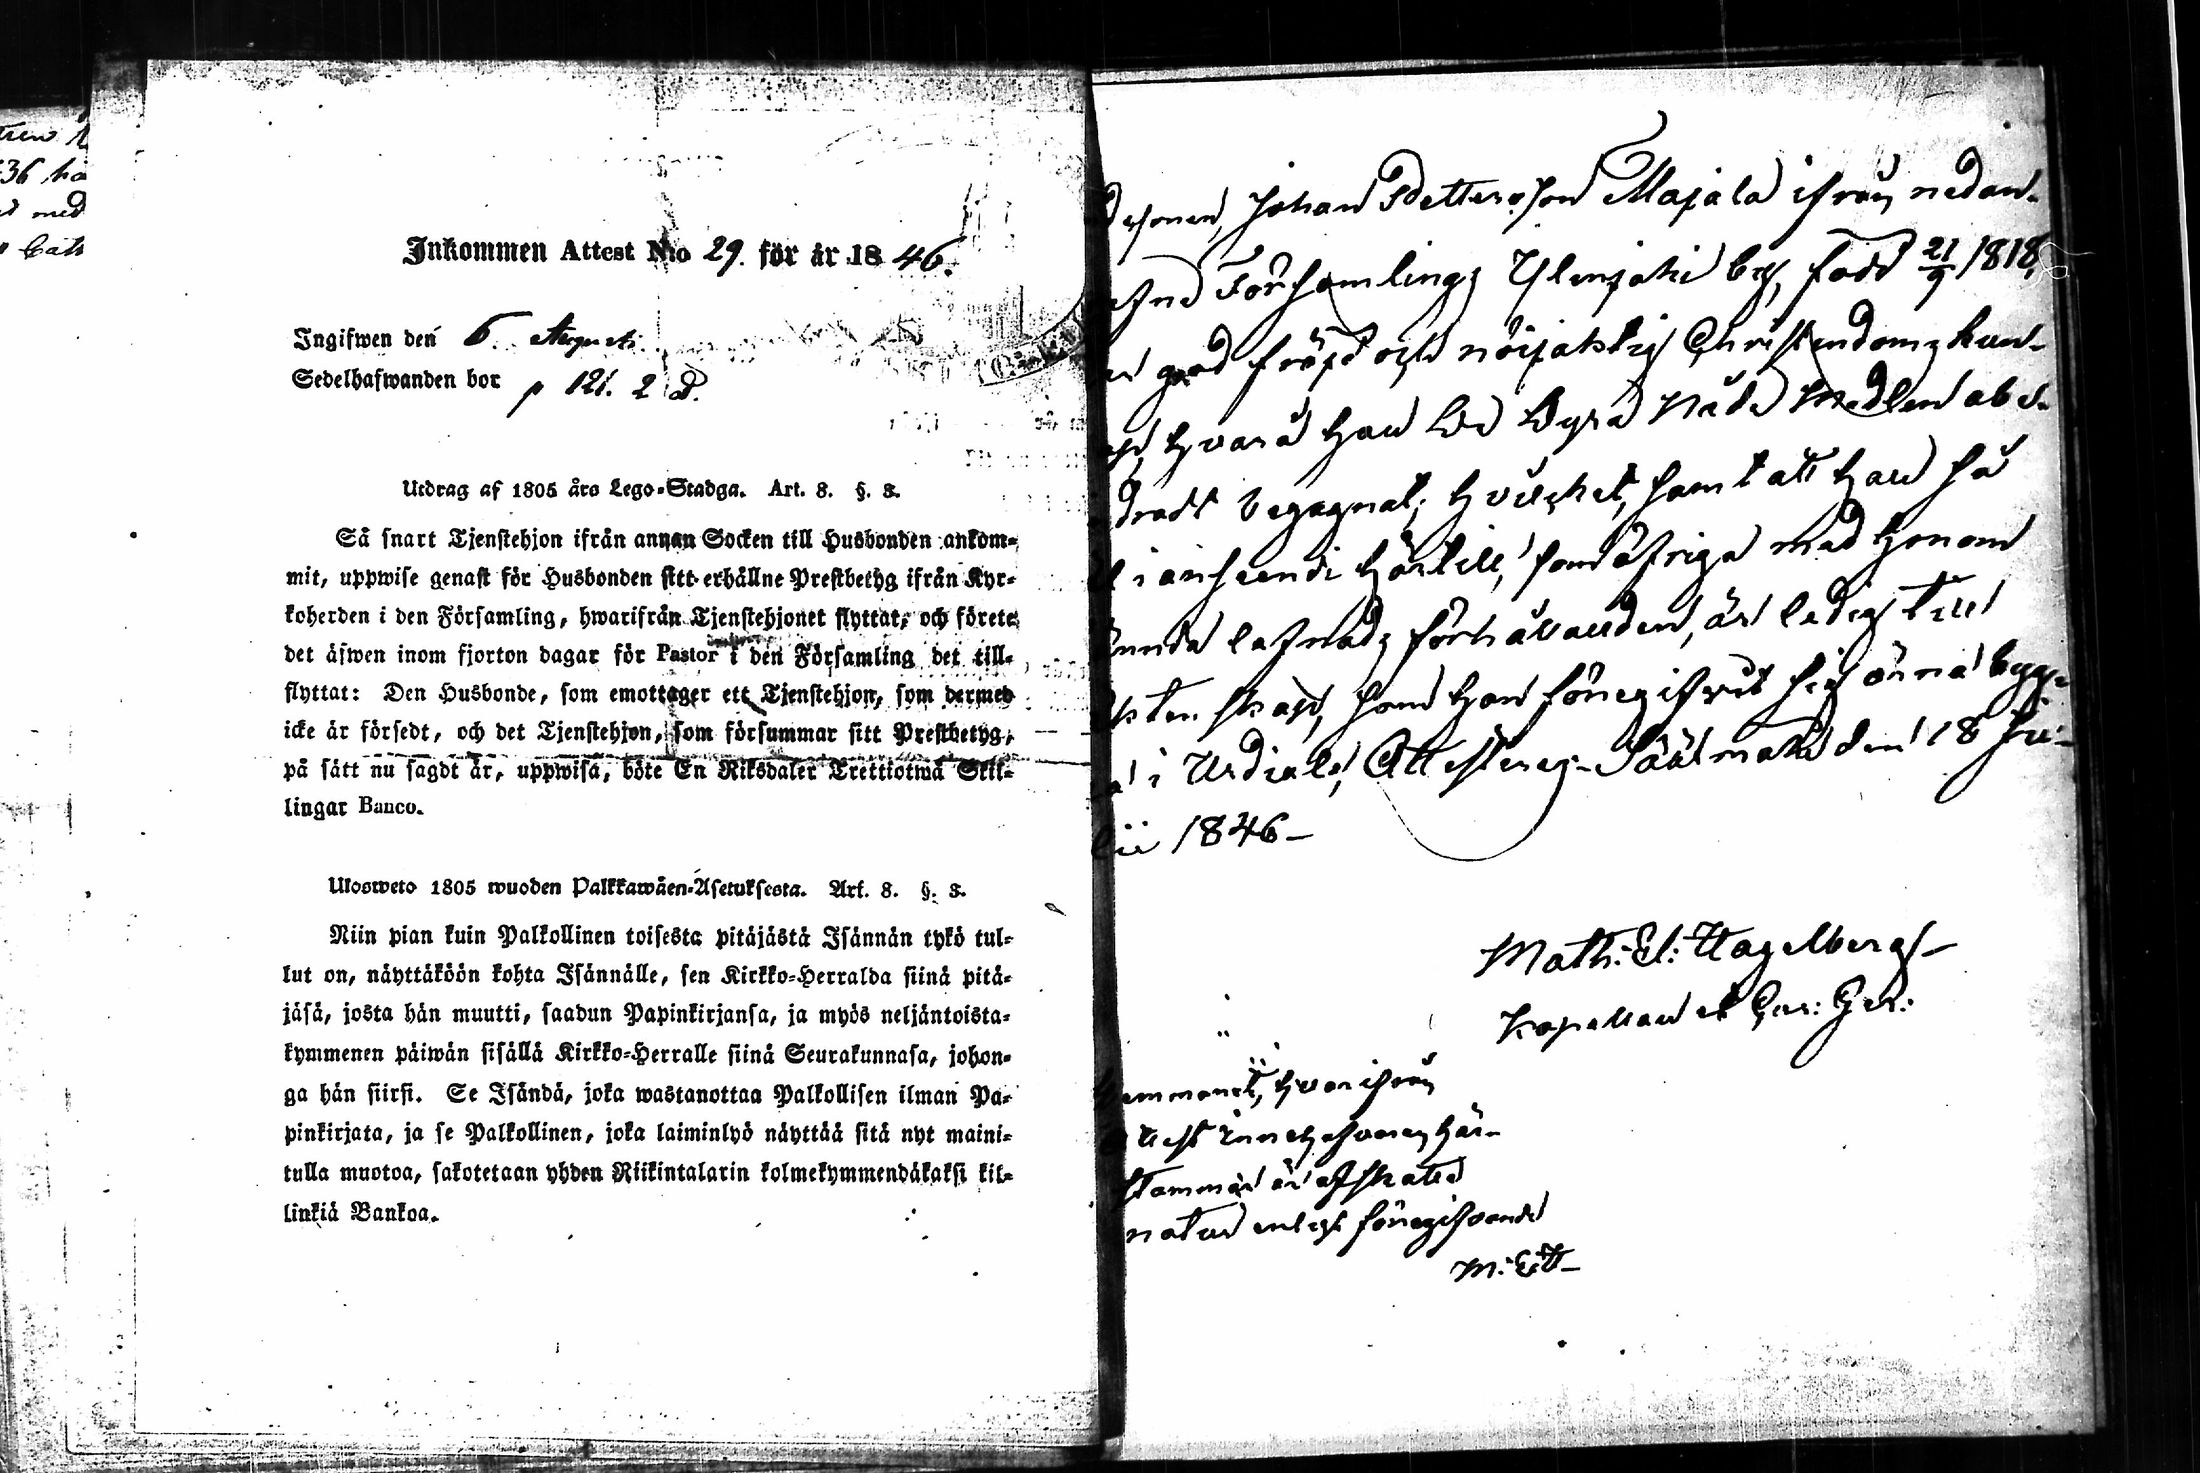 36 ha
med
Inkommen Attest N:o 29. för år 1846.
Ingifwen den 6. Augusti.
Sedelhafwanden bor p 121. 2 d.
Utdrag af 1805 års Lego-Stadga. Art. 8. §. 3.
Så snart Tjenstehjon ifrån annan Socken till Husbonden ankom-
mit, uppwise genast för Husbonden sitt erhållne Prestbetyg ifrån Kyr-
koherden i den Församling, hwarifrån Tjenstehjonet flyttat, och förete
det äfwen inom fjorton dagar för Pastor i den Församling det till-
flyttat: Den Husbonde, som emottager ett Tjenstehjon, som dermed
icke är försedt, och det Tjenstehjon, som försummar sitt Prestbetyg,
på sätt nu sagdt är, uppwisa, böte En Riksdaler Trettiotwå Skil-
lingar Banco.
Ulosweto 1805 wuoden Palkkawäen-Asetuksesta. Art. 8. §. 3.
Niin pian kuin Palkollinen toisesta pitäjästä Isännän tykö tul-
lut on, näyttäköön kohta Isännälle, sen Kirkko-Herralda siinä pitä-
jäsä, josta hän muutti, saadun Papinkirjansa, ja myös neljäntoista-
kymmenen päiwän sisällä Kirkko-Herralle siinä Seurakunnasa, johon-
ga hän siirsi. Se Isändä, joka wastanottaa Palkollisen ilman Pa-
pinkirjata, ja se Palkollinen, joka laiminlyö näyttää sitä nyt maini-
tulla muotoa, sakotetaan yhden Riikintalarin kolmekymmendäkaksi kil-
linkiä Bankoa.
Johan Pettersson Majala ifrån nedan-
Församlings Ylenjoki by, född 21/9 1818,
god fräjd och nöjaktig Christendoms kun-
hvarå han De Dyra Nåde Medlen obe-
begagnat; hvilket, samt att han så
i anseende härtill, som öfriga med honom
lefnads förhållanden, är ledig till
som han föregifvit sig ärna bygg-
i Urdiala, Attesteras. Säämäki den 18 Ju-
lii 1846-
Math: El: Hagelberg-
Kapellan
hvarifrån
innehafvaren här-
stammar är
enligt föregifvande